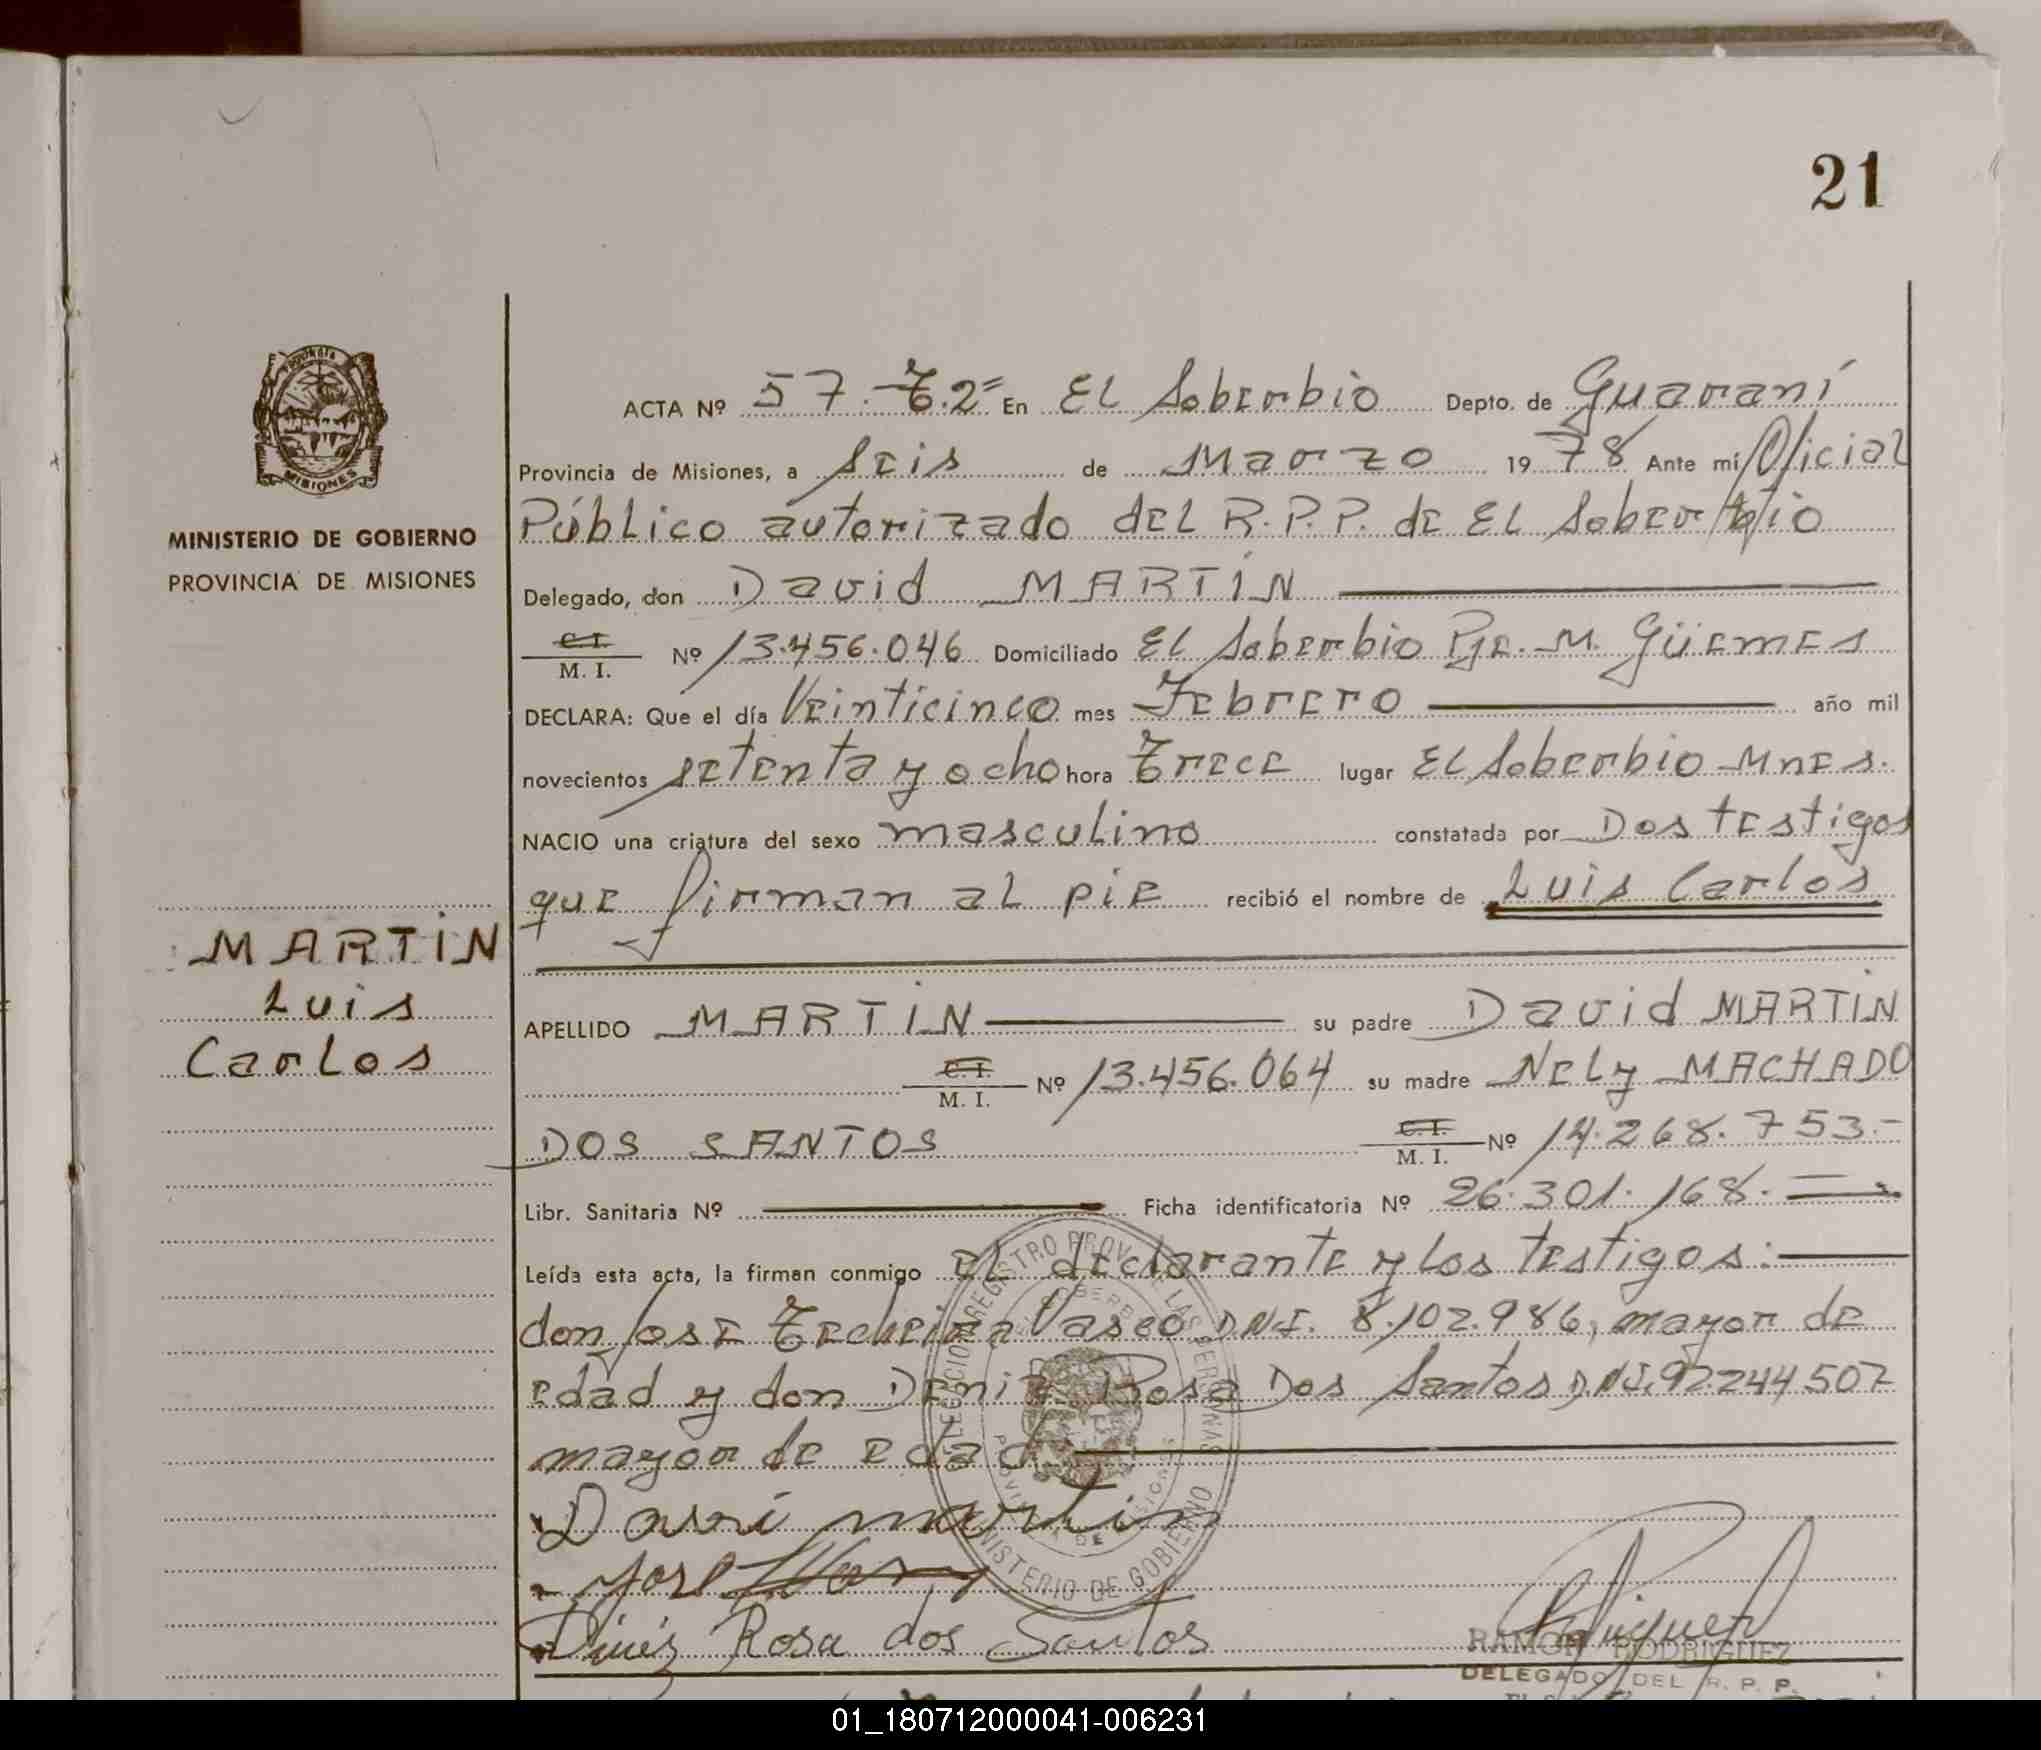 21
ACTA Nº 57.-T.2º En El Soberbio Depto. de Guaraní
Provincia de Misiones, a Seis de Marzo 1978 Ante mí Oficial
Público autorizado del R.P.P. de El Soberbio
MINISTERIO DE GOBIERNO
PROVINCIA DE MISIONES
Delegado, don David MARTIN
C.I.
M. I. Nº 13.456.046 Domiciliado El Soberbio Pje. M. Güemes
DECLARA: Que el día Veinticinco mes Febrero año mil
novecientos setenta y ocho hora Trece lugar El Soberbio Mnes.
NACIO una criatura del sexo masculino constatada por Dos testigos
que firman al pie recibió el nombre de Luis Carlos
MARTIN
Luis
Carlos
APELLIDO MARTIN su padre David MARTIN
C.I.
M. I. Nº 13.456.064 su madre Nely MACHADO
DOS SANTOS C.I.
M. I. Nº 14.268.753.-
Libr. Sanitaria Nº Ficha identificatoria Nº 26.301.168.-
Leída esta acta, la firman conmigo El declarante y los testigos:
don José Vasco DNI. 8.102.986, mayor de
edad y don Rosa Dos Santos DNI. 92.244507
mayor de edad
Davi martin
Jose
Rosa dos Santos
RAMON RODRIGUEZ
DELEGADO DEL R. P. P.
MINISTERIO DE GOBIERNO
01_180712000041-006231